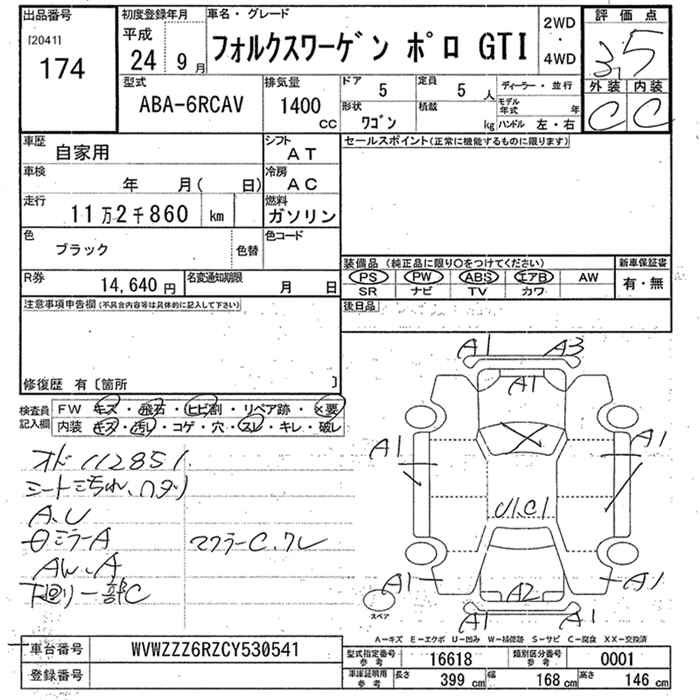 出品番号 初度登録年月 車名・グレード 評価点
[2041] 平成 2WD
174 24 9月 フォルクスワーゲン ポロ GTI ・ 3.5
4WD
型式 排気量 ドア 5 定員 5 人 ディーラー・並行 外装 内装
ABA-6RCAV 1400 CC 形状 ワゴン 積載 kg モデル年式 年 C C
ハンドル 左・右
車歴 自家用 シフト AT セールスポイント(正常に機能するものに限ります)
車検 年 月( 日) 冷房 AC
走行 11万2千860 km 燃料 ガソリン
色 ブラック 色替 色コード
装備品 (純正品に限り○をつけてください) 新車保証書
R券 14,640 円 名変通知期限 月 日 PS PW ABS エアB AW 有・無
SR ナビ TV カワ
注意事項申告欄 (不具合内容等は具体的に記入して下さい) 後日品
修復歴 有 〔箇所 〕
検査員 FW キズ・飛石・ヒビ割・リペア跡・×要
記入欄 内装 キズ・汚レ・コゲ・穴・スレ・キレ・破レ
A1 A3
A1
A1 A1
オド112851.
シートこちれ、
A、U
U1.C1
ミラーA マフラーC.クレ
AW、A
下廻り一部C
A1 A2 A1
スペア A1 A1
A-キズ E-エクボ U-凹み W-補修跡 S-サビ C-腐食 XX-交換済
車台番号 WVWZZZ6RZCY530541 型式指定番号 参考 16618 類別区分番号 参考 0001
登録番号 車庫証明用 参考 長さ 399 cm 幅 168 cm 高さ 146 cm